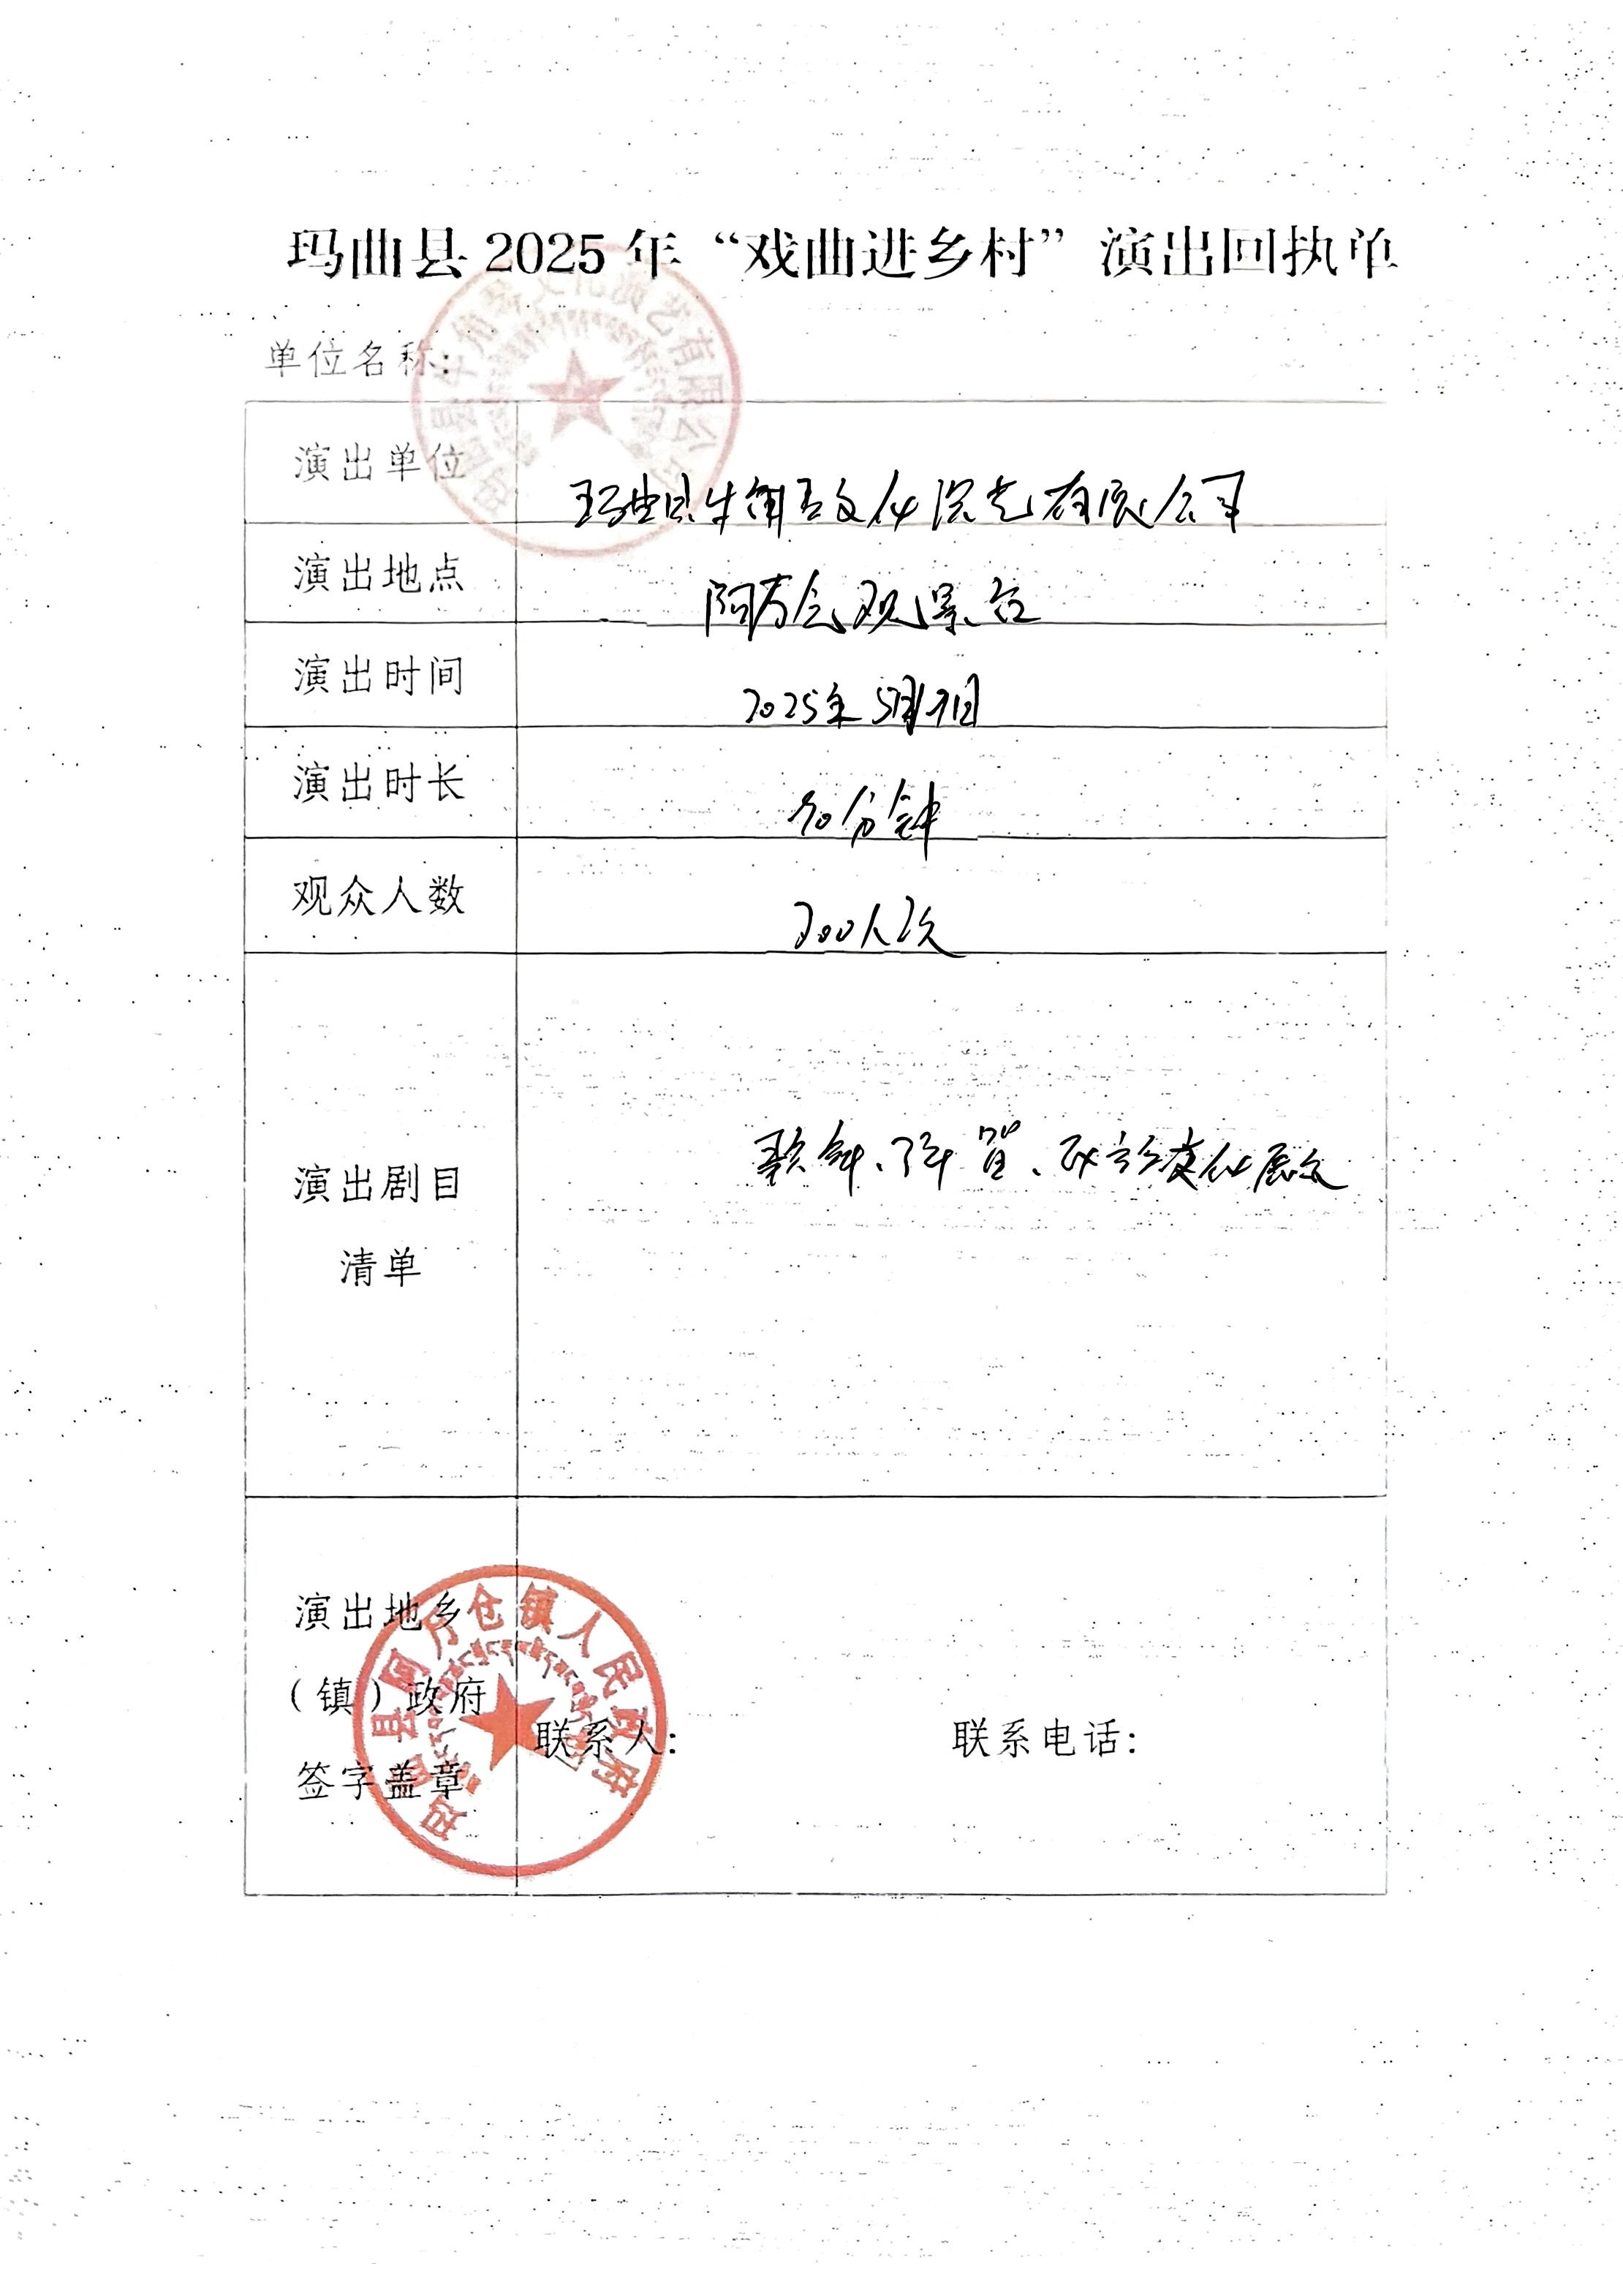 玛曲县 2025 年“戏曲进乡村”演出回执单
单位名称:
演出单位
玛曲县牛角号文化演艺有限公司
演出地点
阿万仓观景台
演出时间
2025年5月1日
演出时长
90分钟
观众人数
人次
演出剧目
清单
歌舞、弹唱、文化展
演出地乡
（镇）政府
签字盖章
联系人:
联系电话:
玛曲县阿万仓镇人民政府